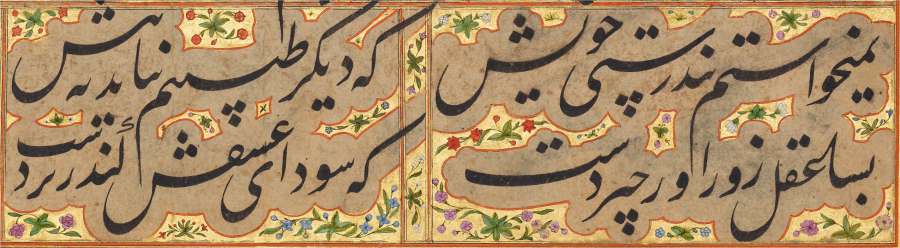 نمیخواستم تندرستی خویش که دیگر طبیبم نیاید به پیش
بسا عقل زوراور چیردست که سودای عشقش کند زیردست